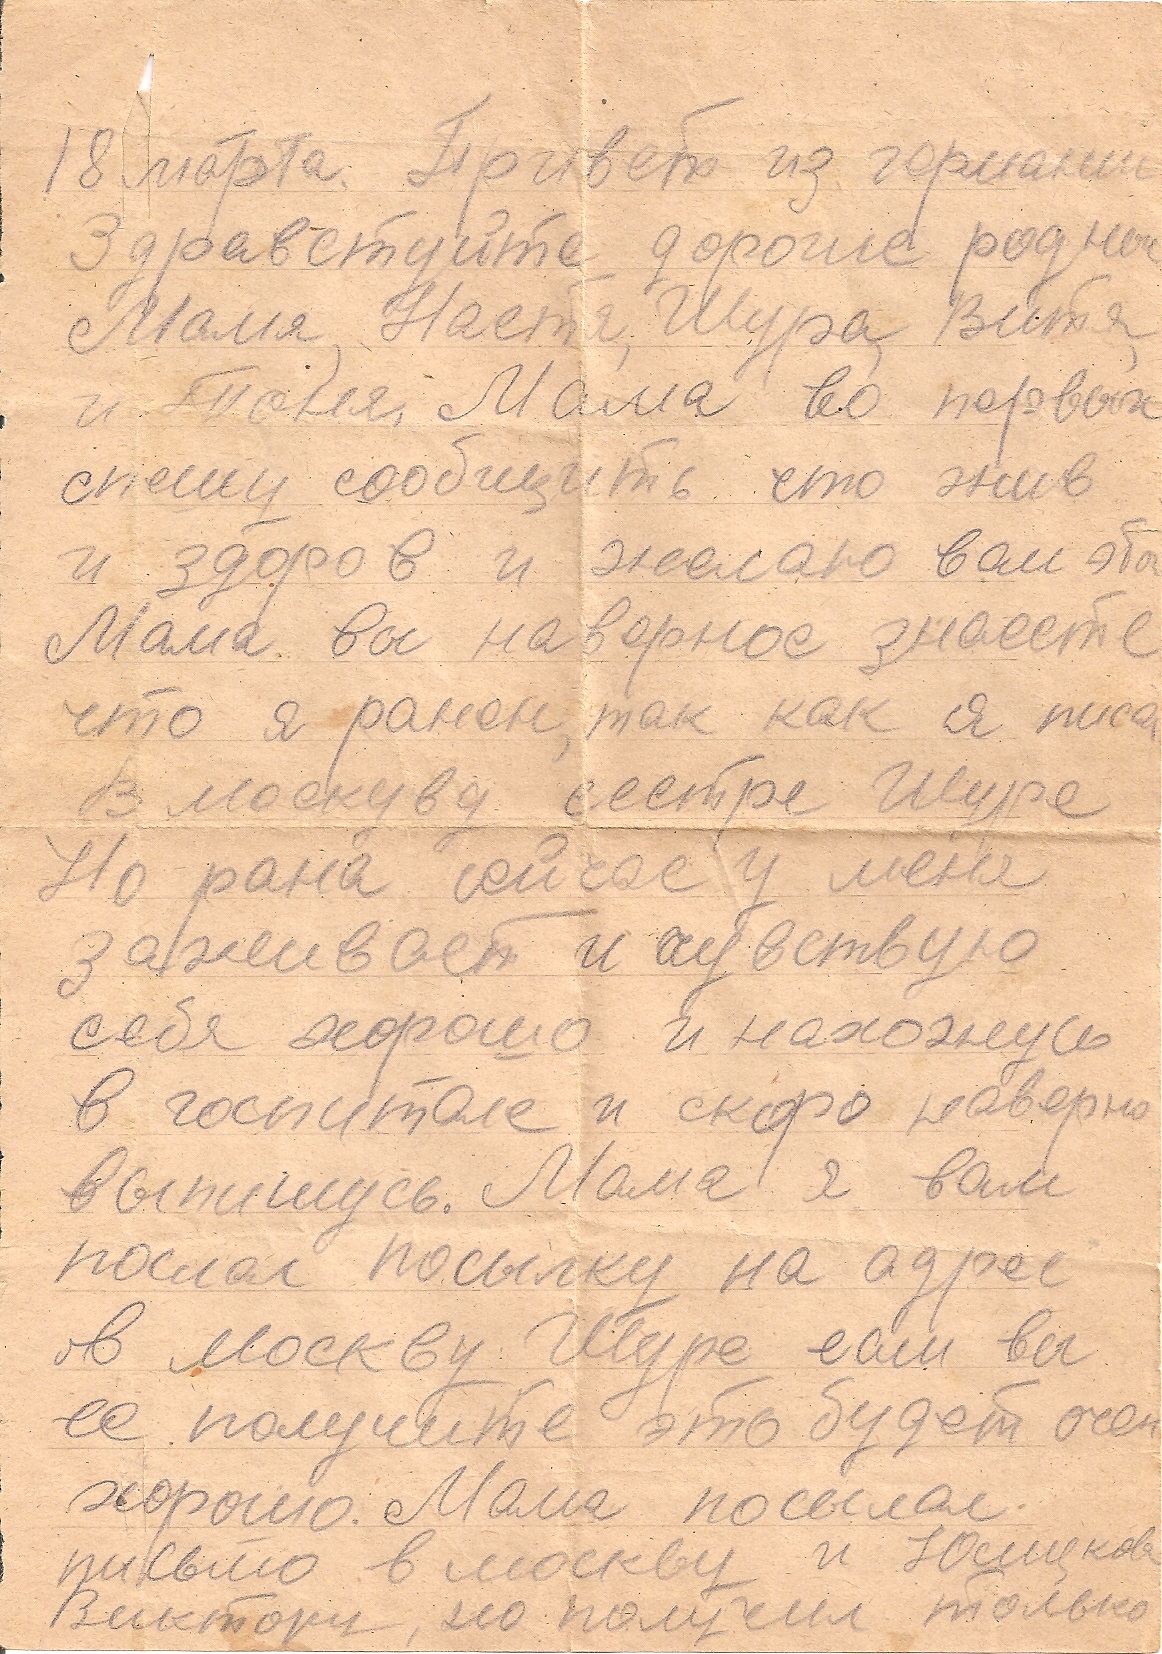 18 марта. Привет из германии
Здравствуйте дорогие родные
Мама, Настя, Шура, Витя,
и Тоня. Мама во первых
спешу сообщить что жив
и здоров и желаю вам
Мама вы наверное знаеете
что я ранен, так как я писа
В москву сестре Шуре
Но рана сейчас у меня
заживает и чувствую
себя хорошо и нахожусь
в госпитале и скоро наверно
выпишусь. Мама я вам
послал посылку на адрес
в москву Шуре если вы
ее получите это будет очен
хорошо. Мама посылал
письмо в москву и
Виктору, но получил только